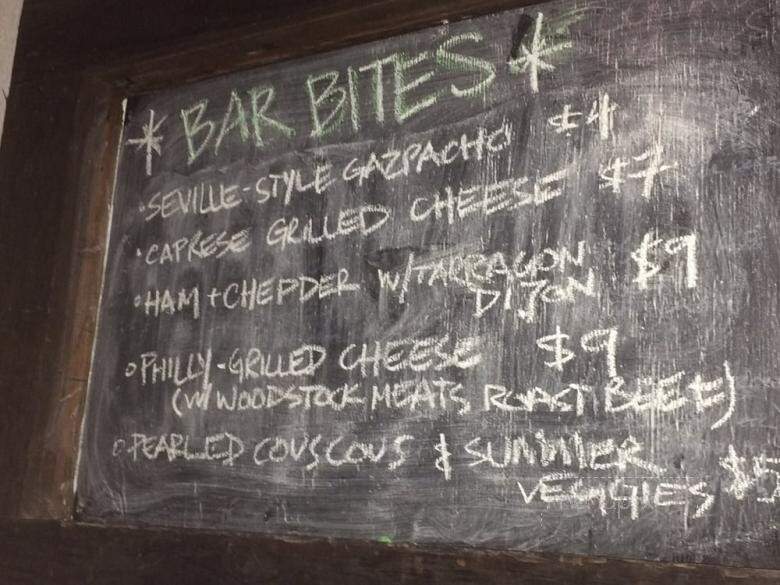 * BAR BITES *
• SEVILLE-STYLE GAZPACHO $4
• CAPRESE GRILLED CHEESE $7
• HAM + CHEDDER W/TARRAGON $9
DIJON
• PHILLY-GRILLED CHEESE $9
(W/ WOODSTOCK MEATS ROAST BEEF)
• PEARLED COUSCOUS & SUMMER
VEGGIES $5